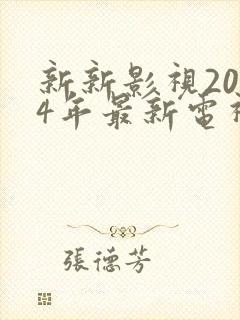 新新影視20
4年最新電視
張德芳